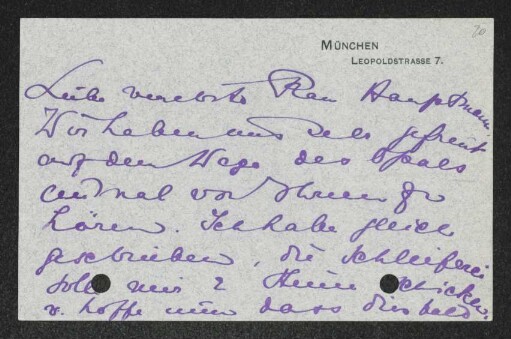 20
MÜNCHEN
LEOPOLDSTRASSE 7.
Liebe verehrte Frau Hauptmann,
Wir haben uns sehr gefreut
auf dem Wege des Opals
einmal von Ihnen zu
hören. Ich habe gleich
geschrieben, die Schleiferei
soll mir 2 schicken
u. hoffe nun dass dies bald